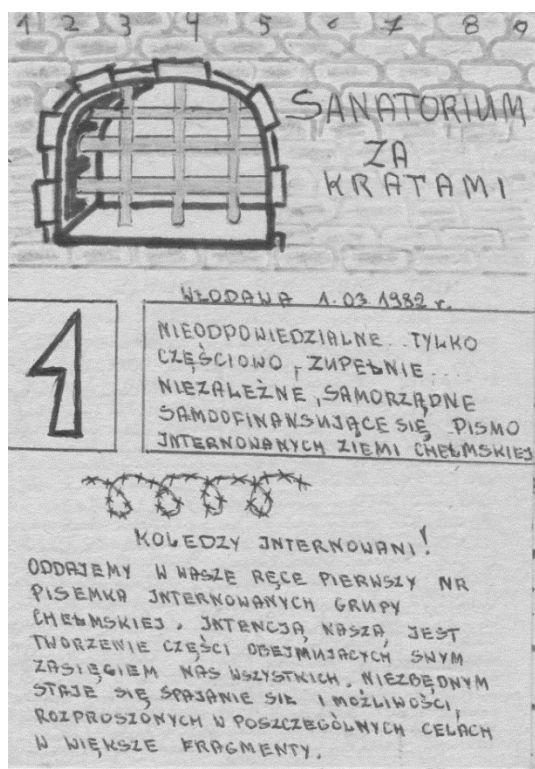 1 2 3 4 5 6 7 8 9
SANATORIUM
ZA
KRATAMI
WŁODAWA 1.03.1982 r.
1
NIEODPOWIEDZIALNE... TYLKO
CZĘŚCIOWO, ZUPEŁNIE...
NIEZALEŻNE, SAMORZĄDNE
SAMOOFINANSUJĄCE SIĘ PISMO
INTERNOWANYCH ZIEMI CHEŁMSKIEJ
KOLEDZY INTERNOWANI!
ODDAJEMY W WASZE RĘCE PIERWSZY NR
PISEMKA INTERNOWANYCH GRUPY
CHEŁMSKIEJ. INTENCJĄ NASZĄ JEST
TWORZENIE CZĘŚCI OBEJMUJĄCYCH SWYM
ZASIĘGIEM NAS WSZYSTKICH. NIEZBĘDNYM
STAJE SIĘ SPAJANIE SIŁ I MOŻLIWOŚCI,
ROZPROSZONYCH W POSZCZEGÓLNYCH CELACH
W WIĘKSZE FRAGMENTY.